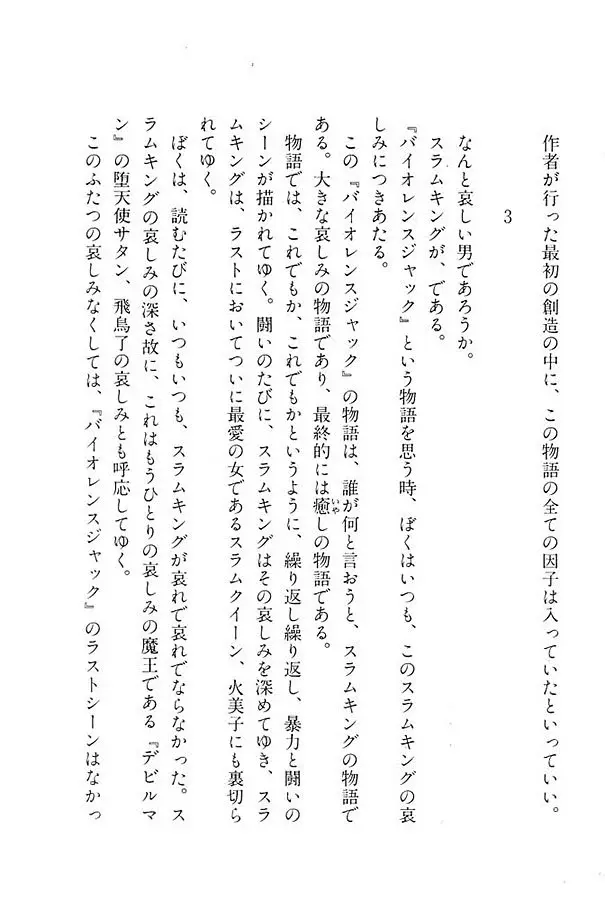 作者が行った最初の創造の中に、この物語の全ての因子は入っていたといっていい。
3
なんと哀しい男であろうか。
スラムキングが、である。
『バイオレンスジャック』という物語を思う時、ぼくはいつも、このスラムキングの哀
しみにつきあたる。
この『バイオレンスジャック』の物語は、誰が何と言おうと、スラムキングの物語で
ある。大きな哀しみの物語であり、最終的には癒いやしの物語である。
物語では、これでもか、これでもかというように、繰り返し繰り返し、暴力と闘いの
シーンが描かれてゆく。闘いのたびに、スラムキングはその哀しみを深めてゆき、スラ
ムキングは、ラストにおいてついに最愛の女であるスラムクイーン、火美子にも裏切ら
れてゆく。
ぼくは、読むたびに、いつもいつも、スラムキングが哀れで哀れでならなかった。ス
ラムキングの哀しみの深さ故に、これはもうひとりの哀しみの魔王である『デビルマ
ン』の堕天使サタン、飛鳥了の哀しみとも呼応してゆく。
このふたつの哀しみなくしては、『バイオレンスジャック』のラストシーンはなかっ